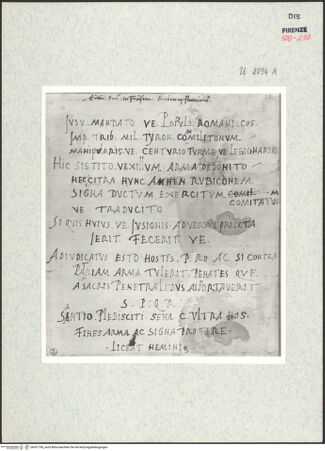 DIS
FIRENZE
500-210
U 2034 A
IUSU. MANDATO. VE. POPULI. ROMANI. COS.
IMP. TRIB. MIL. TYRON. COMILITONUM.
MANIPULARIS. VE. CENTURIO TURMÆ VE LEGIONARIE
HIC SISTITO. VEXILLUM. ARMA DEPONITO
NEC CITRA HUNC AMNEM RUBICONEM.
SIGNA DUCTUM EXERCITUM COMIT. M
COMITATUM
VE TRADUCITO
SI QUIS HUIUS. VE. IUSIONIS. ADVERSUS PRECEPTA
IERIT. FECERIT VE.
ADIUDICATUS ESTO HOSTIS. P. R. AC SI CONTRA
PATRIAM ARMA TULERIT. PENATES QUE
A SACRIS PENETRALIBUS ASPORTAVERIT
S. P. Q. R.
SANTIO PLEBISCITI SENA C. ULTRA HOS.
FINES ARMA AC SIGNA PROFERE.
LICEAT NEMINI